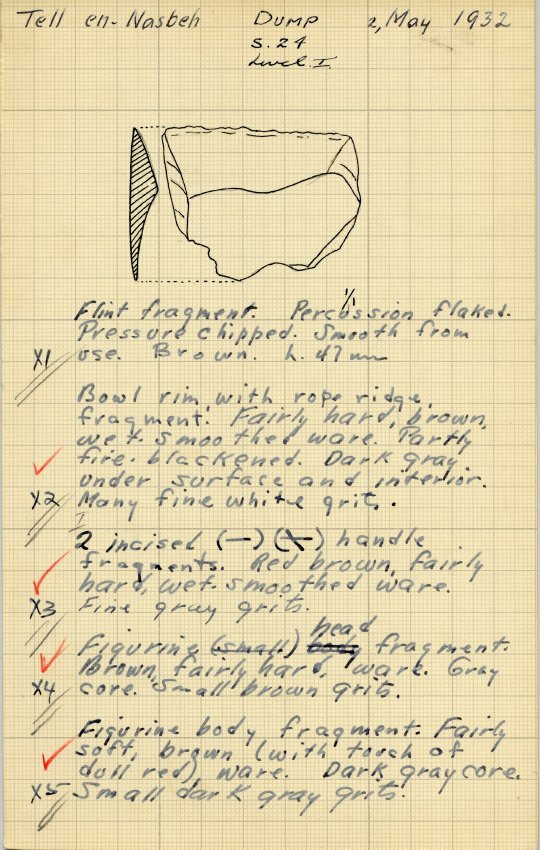 Tell en-Nasbeh Dump 2, May 1932
S. 24
Level I
1/1
Flint fragment. Percussion flaked.
Pressure chipped. Smooth from
X1 use. Brown. L. 47 mm
Bowl rim, with rope ridge,
fragment. Fairly hard, brown,
wet-smoothed ware. Partly
fire-blackened. Dark gray
under surface and interior.
X2 Many fine white grits.
2 incised (—) (X) handle
fragments. Red brown, fairly
hard, wet-smoothed ware.
X3 Fine gray grits.
head
Figurine (small) body fragment.
Brown, fairly hard, ware. Gray
X4 core. Small brown grits.
Figurine body fragment. Fairly
soft, brown (with touch of
dull red), ware. Dark gray core.
X5 Small dark gray grits.